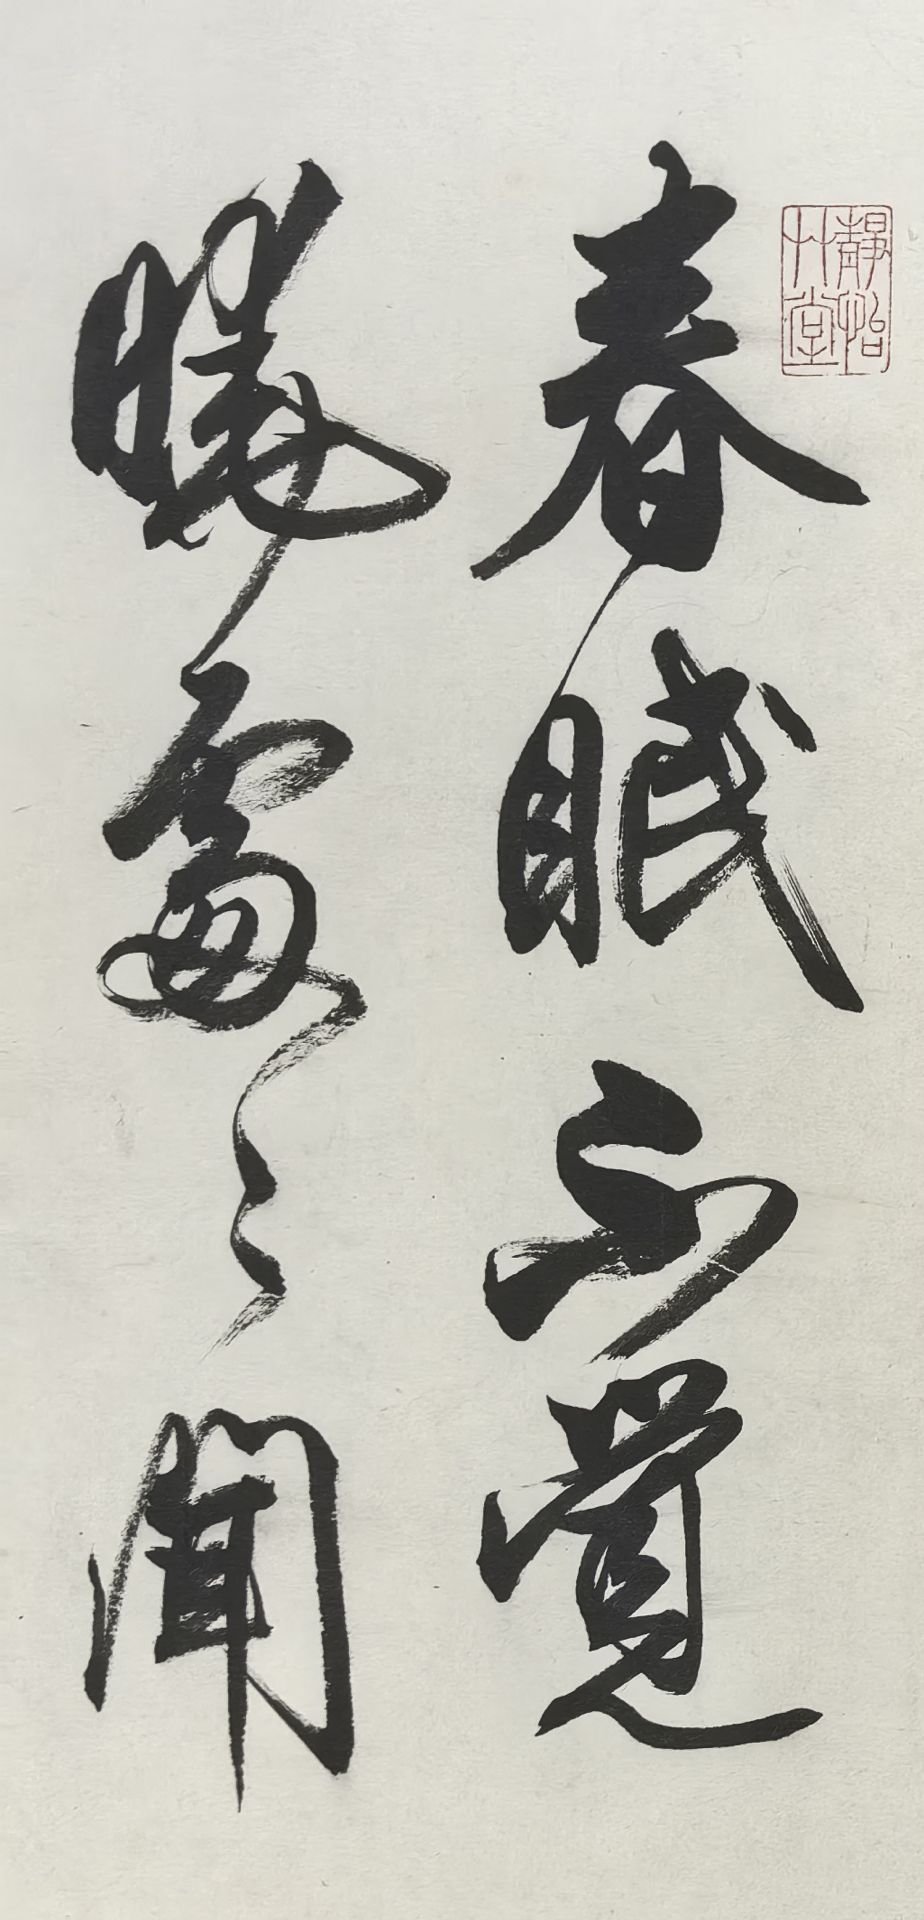 春眠不覺
曉處々聞
靜怡艸堂